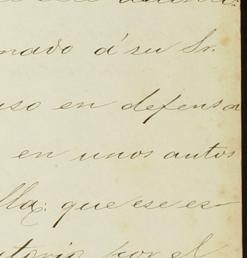 nado á su Sr.
uso en defensa
en unos autos
lla: que ese es-
torio por el